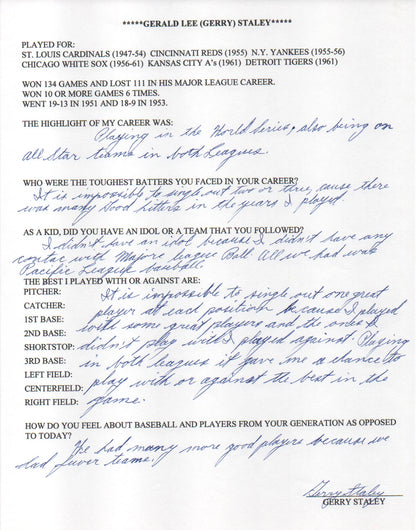 *****GERALD LEE (GERRY) STALEY*****
PLAYED FOR:
ST. LOUIS CARDINALS (1947-54) CINCINNATI REDS (1955) N.Y. YANKEES (1955-56)
CHICAGO WHITE SOX (1956-61) KANSAS CITY A's (1961) DETROIT TIGERS (1961)
WON 134 GAMES AND LOST 111 IN HIS MAJOR LEAGUE CAREER.
WON 10 OR MORE GAMES 6 TIMES.
WENT 19-13 IN 1951 AND 18-9 IN 1953.
THE HIGHLIGHT OF MY CAREER WAS:
Playing in the World Series, also being on
All Star teams in both Leagues.
WHO WERE THE TOUGHEST BATTERS YOU FACED IN YOUR CAREER?
It is impossible to single out two or three, cause there
was many good hitters in the years I played
AS A KID, DID YOU HAVE AN IDOL OR A TEAM THAT YOU FOLLOWED?
I didn't have an idol because I didn't have any
contac with Majore league Ball. All we had was
Pacific League baseball.
THE BEST I PLAYED WITH OR AGAINST ARE:
PITCHER: It is impossible to single out one great
CATCHER: player at each position because I played
1ST BASE: with some great players and the ones I
2ND BASE:
SHORTSTOP: didn't play with I played against. Playing
3RD BASE: in both leagues it gave me a chance to
LEFT FIELD: play with or against the best in the
CENTERFIELD: game.
RIGHT FIELD:
HOW DO YOU FEEL ABOUT BASEBALL AND PLAYERS FROM YOUR GENERATION AS OPPOSED
TO TODAY?
We had many more good players because we
had fewer teams.
Gerry Staley
GERRY STALEY